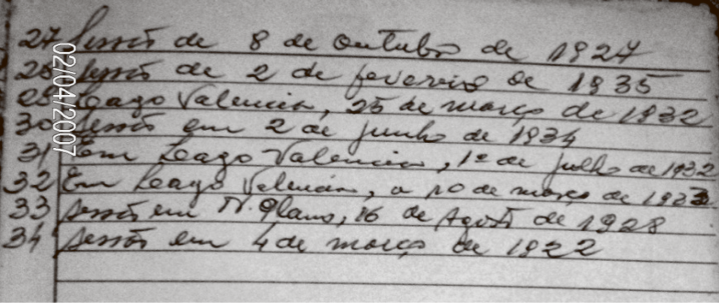 27 Sessão de 8 de Outubro de 1927
28 Sessão de 2 de fevereiro de 1935
29 Lago Valencia, 25 de março de 1932
30 Sessão em 2 de junho de 1934
31 Em Lago Valencia, 1º de julho de 1932
32 Em Lago Valencia, a 10 de março de 1933
33 Sessão em 16 de Agosto de 1928
34 Sessão em 4 de março de 1922
02/04/2007